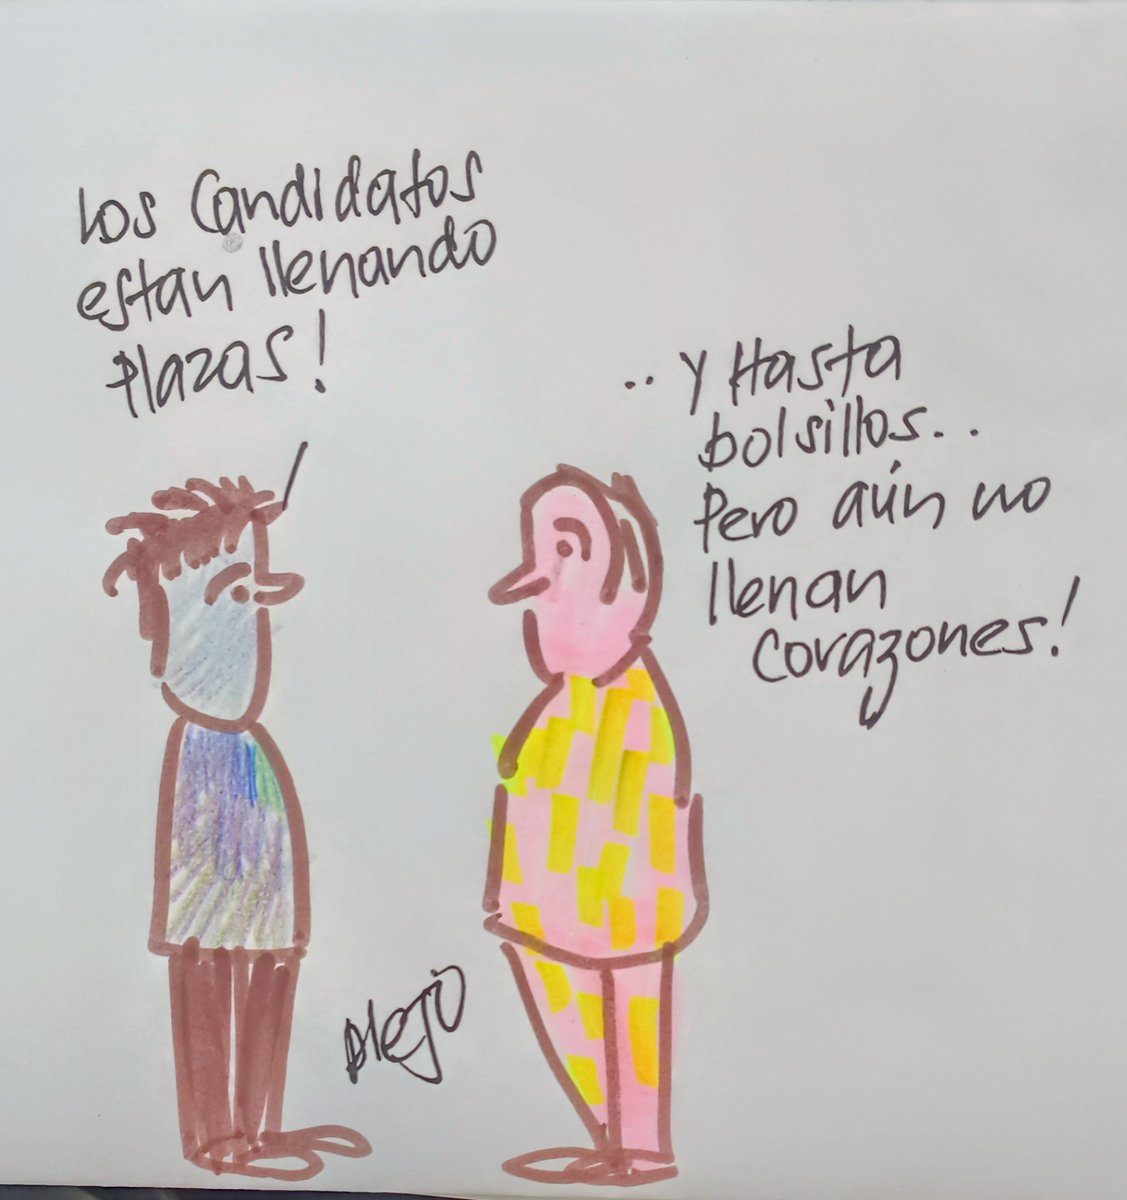 Los Candidatos
estan llenando
Plazas!
.. Y Hasta
bolsillos..
Pero aún no
llenan
corazones!
Alejo